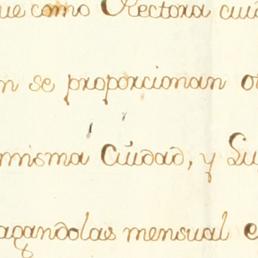 ue como Rectora cui
n se proporcionan o
misma Ciudad, y Su
agandolas mensual e